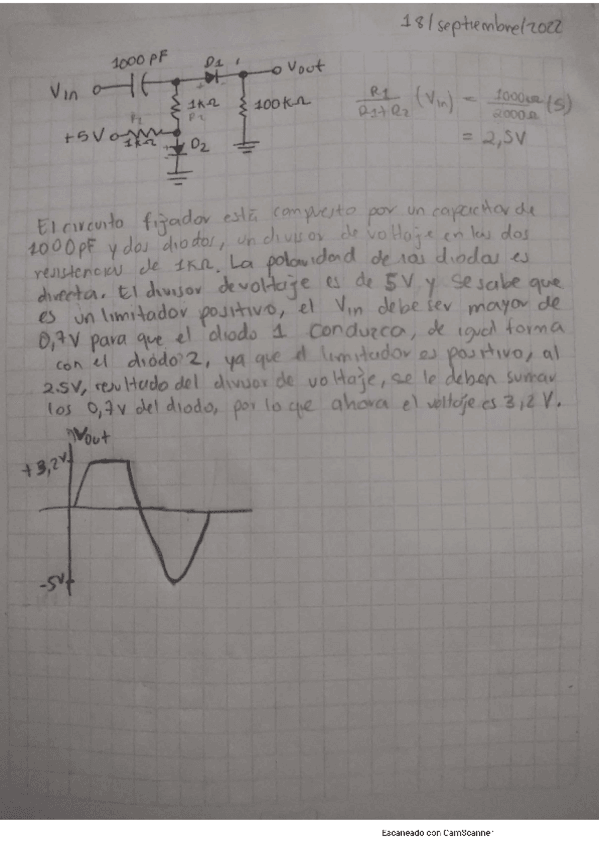 18/septiembre/2022
1000 pF
D1
Vin
Vout
1KΩ
100KΩ
R1/R1+R2 (Vin) = 1000Ω/2000Ω (5)
= 2,5V
+5V
1KΩ
D2
El circuito fijador está compuesto por un capacitor de
1000pF y dos diodos, un divisor de voltaje en las dos
resistencias de 1KΩ. La polaridad de los diodos es
directa. El divisor de voltaje es de 5V y se sabe que
es un limitador positivo, el Vin debe ser mayor de
0,7V para que el diodo 1 conduzca, de igual forma
con el diodo 2, ya que el limitador es positivo, al
2.5V, resultado del divisor de voltaje, se le deben sumar
los 0,7v del diodo, por lo que ahora el voltaje es 3,2 V.
Vout
+3,2V
-5V
Escaneado con CamScanner